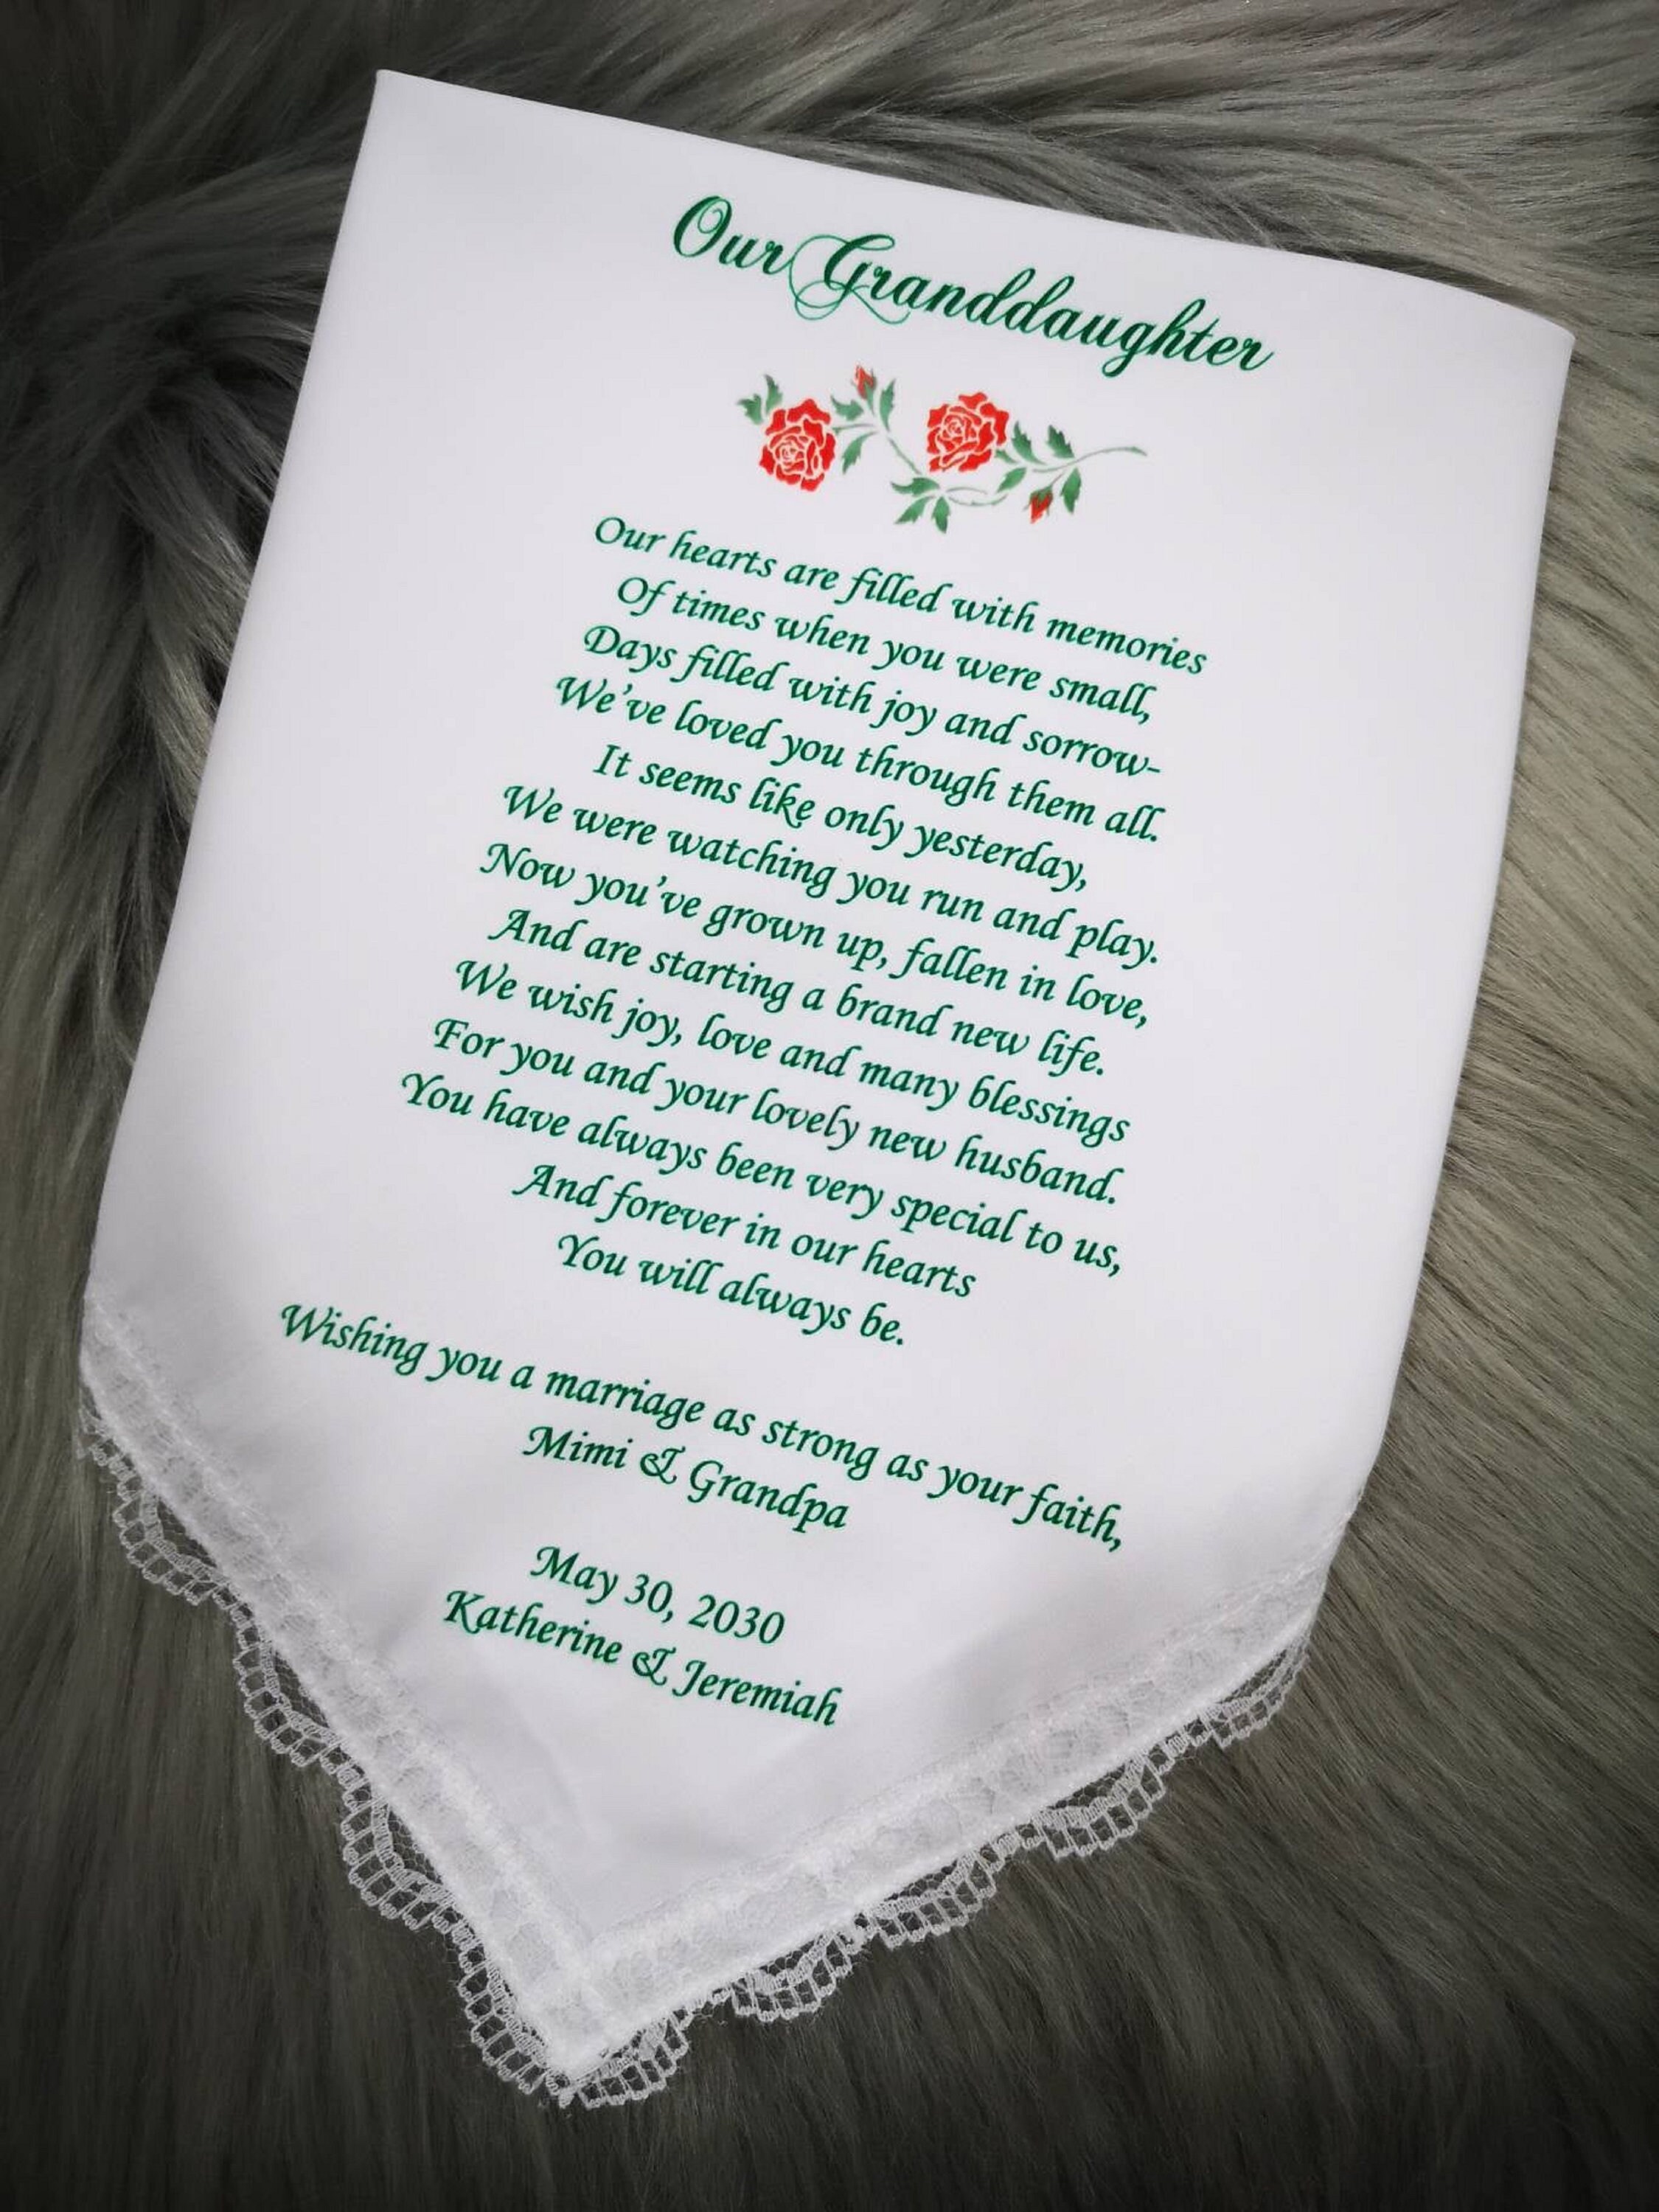 Our Granddaughter
Our hearts are filled with memories
Of times when you were small,
Days filled with joy and sorrow-
We've loved you through them all.
It seems like only yesterday,
We were watching you run and play.
Now you've grown up, fallen in love,
And are starting a brand new life.
We wish joy, love and many blessings
For you and your lovely new husband.
You have always been very special to us,
And forever in our hearts
You will always be.
Wishing you a marriage as strong as your faith,
Mimi & Grandpa
May 30, 2030
Katherine & Jeremiah